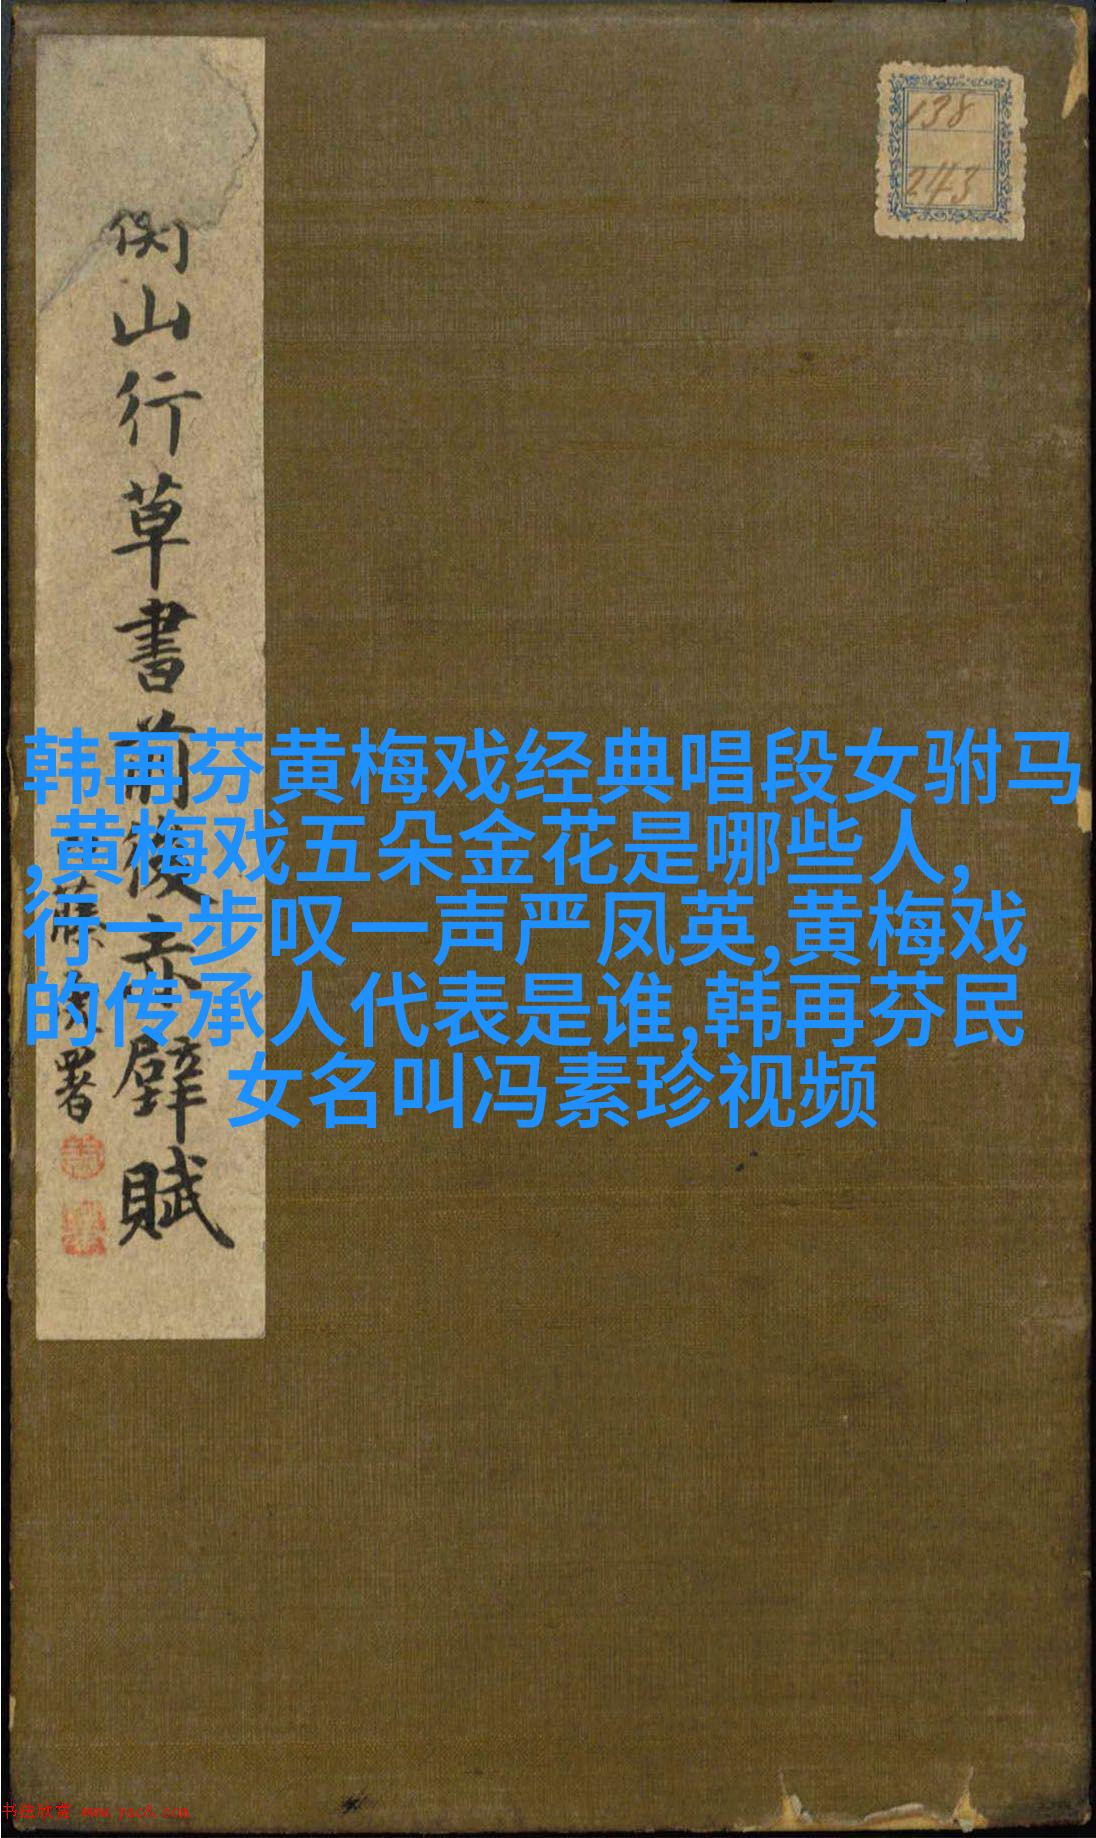 138
243
山行草書前後赤壁賦
署
韩再芬黄梅戏经典唱段女驸马
,黄梅戏五朵金花是哪些人,
行一步叹一声严凤英,黄梅戏
的传承人代表是谁,韩再芬民
女名叫冯素珍视频
书法欣赏 www.yac8.com